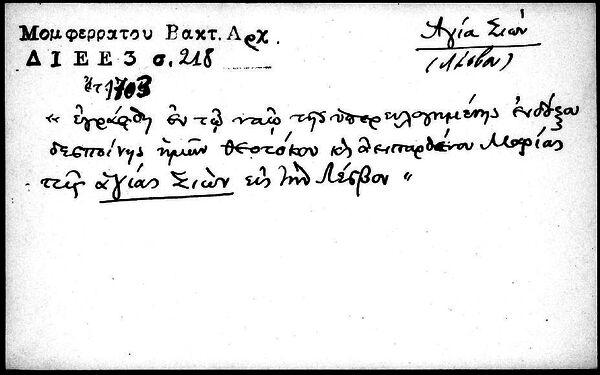 Μομφερρατου Βακτ. Αρχ.
Δ Ι Ε Ε 3 σ. 218
Ἁγία Σιών
(Λέσβου)
ἔτ. 1703
“ ἐγράφη ἐν τῷ ναῷ τῆς ὑπερευλογημένης ἐνδόξου
δεσποίνης ἡμῶν θεοτόκου κ̀ ἀειπαρθένου Μαρίας
τῆς ἁγίας Σιὼν εἰς τὴν Λέσβον ”